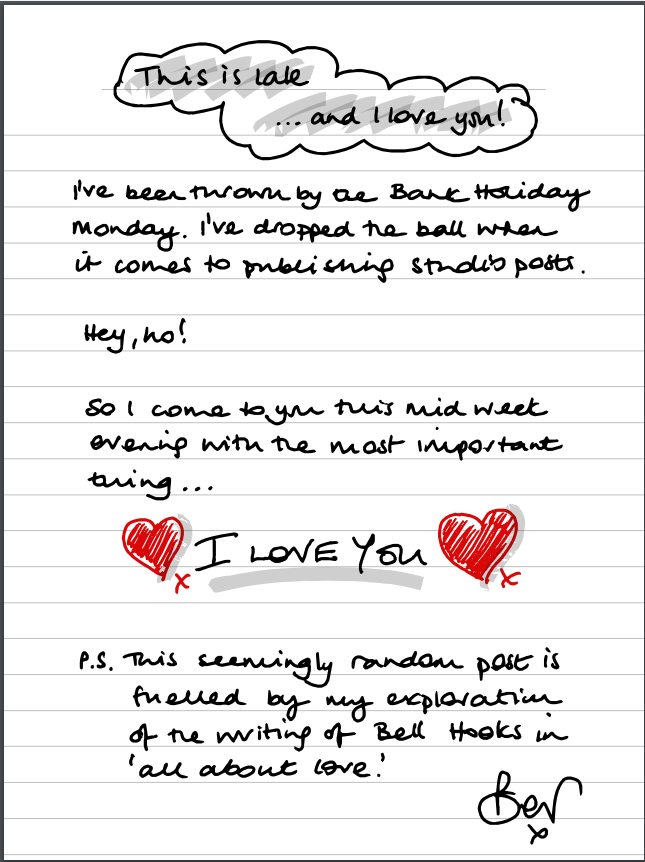 This is late
...and I love you!
I've been thrown by the Bank Holiday
Monday. I've dropped the ball when
it comes to publishing studio posts.
Hey, ho!
So I come to you this mid week
evening with the most important
thing...
x I LOVE YOU x
P.S. This seemingly random post is
fuelled by my exploration
of the writing of Bell Hooks in
'all about love.'
Bev
x